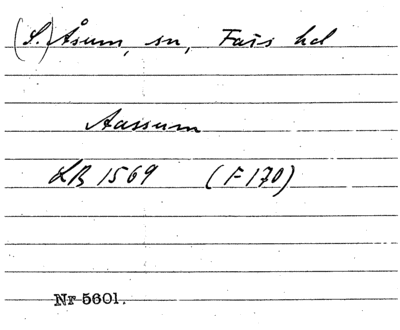 (S.) Åsum, sn, Fārs hd
Aassum
LB 1569 (F 170)
Nr 5601.